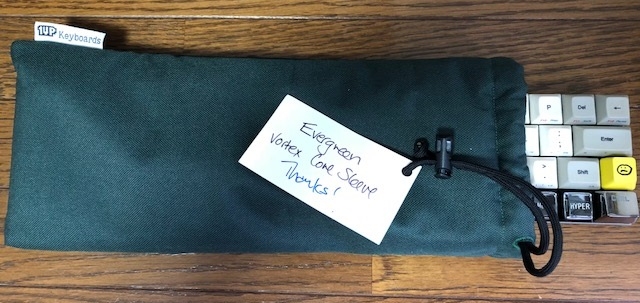 1UP Keyboards
Evergreen
Vortex Core Sleeve
Thanks!
P Del ←
: ; Enter
> Shift
HYPER